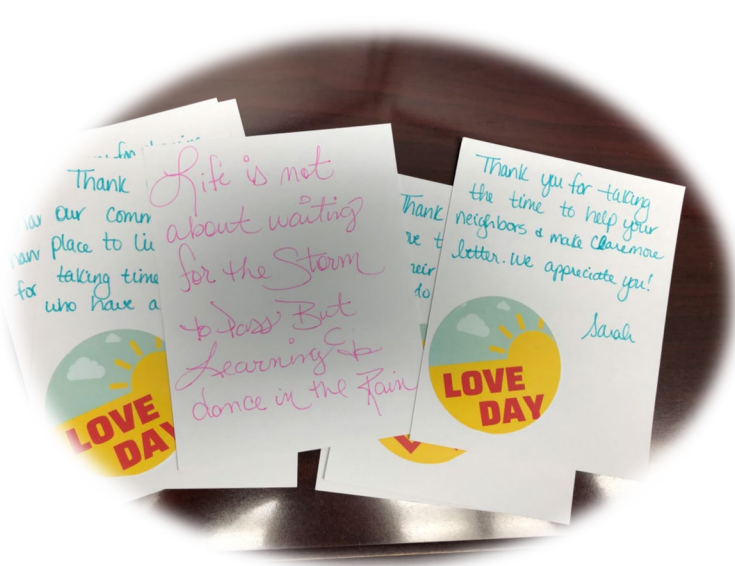 Thank
our comm
place to li
for taking time
who have a
LOVE
DAY
Life is not
about waiting
for the Storm
to pass But
Learning to
dance in the Rain
Thank
do
Thank you for taking
the time to help your
neighbors & make Claremore
better. We appreciate you!
Sarah
LOVE
DAY